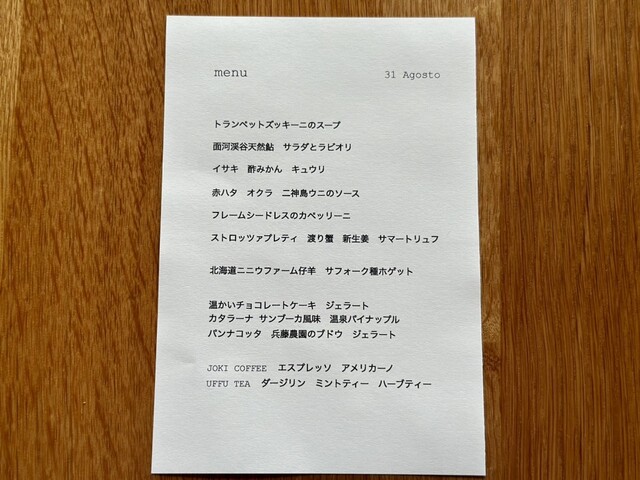 menu
31 Agosto
トランペットズッキーニのスープ
面河渓谷天然鮎　サラダとラビオリ
イサキ　酢みかん　キュウリ
赤ハタ　オクラ　二神島ウニのソース
フレームシードレスのカペッリーニ
ストロッツァプレティ　渡り蟹　新生姜　サマートリュフ
北海道ニニウファーム仔羊　サフォーク種ホゲット
温かいチョコレートケーキ　ジェラート
カタラーナ サンブーカ風味　温泉パイナップル
パンナコッタ　兵藤農園のブドウ　ジェラート
JOKI COFFEE　エスプレッソ　アメリカーノ
UFFU TEA　ダージリン　ミントティー　ハーブティー